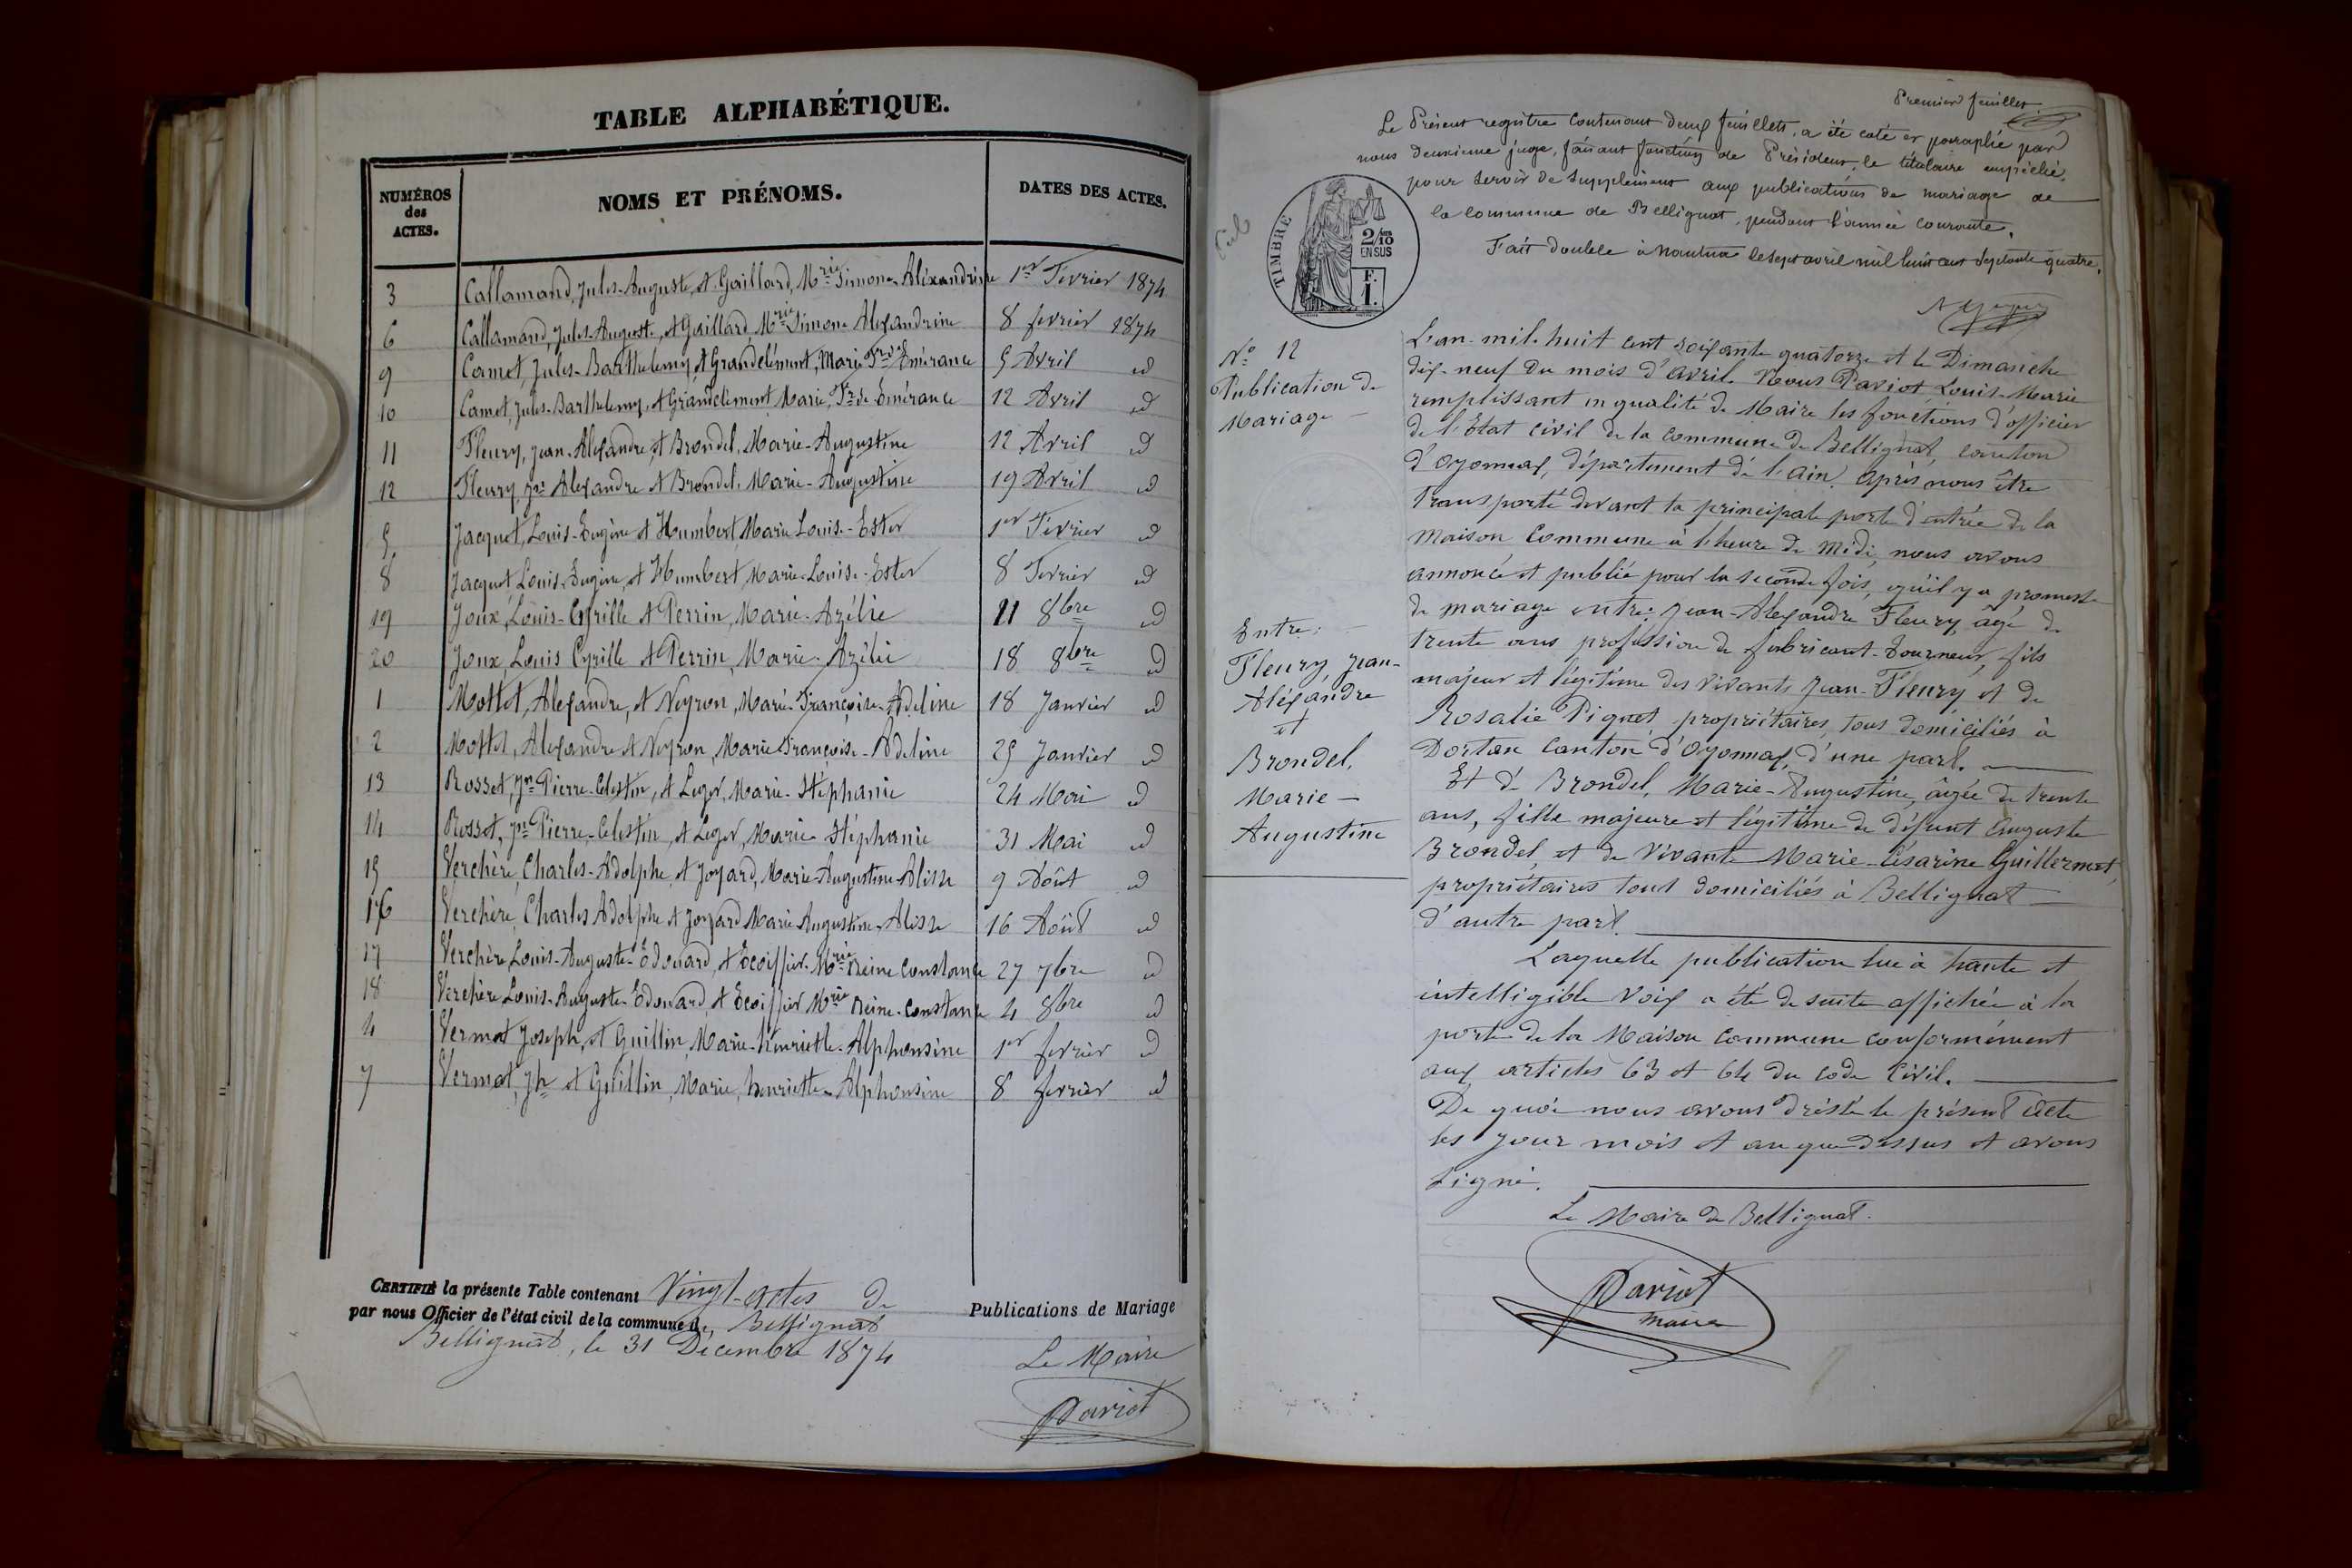 TABLE ALPHABÉTIQUE.
NUMÉROS des ACTES. NOMS ET PRÉNOMS. DATES DES ACTES.
3 Callamand, Jules-Auguste, et Gaillard, Mrie Simone-Aléxandrine 1er Février 1874
6 Callamand, Jules-August. et Gaillard, Mrie Simone Alexandrine 8 février 1874
9 Camet, Jules-Barthelemy et Grandclément, Marie Emérance 5 Avril id
10 Camet, Jules-Barthelemy, et Grandclément Marie, Emérance 12 Avril id
11 Fleury, Jean-Alexandre, et Brondel, Marie-Augustine 12 Avril id
12 Fleury, Jn Alexandre et Brondel, Marie-Augustine 19 Avril id
5 Jacquet, Louis-Eugène et Humbert, Marie Louis.-Ester 1er Février id
8 Jacquet, Louis-Eugène, et Humbert, Marie-Louise-Ester 8 Fevrier id
19 Joux, Louis-Cyrille et Perrin, Marie-Azélie 11 8bre id
20 Joux, Louis Cyrille et Perrin, Marie-Azélie 18 8bre id
1 Mottet, Alexandre, et Neyron, Marie-Françoise-Adeline 18 Janvier id
2 Mottet, Alexandre et Neyron, Marie Françoise-Adeline 25 Janvier id
13 Rosset, Jn Pierre-Celestin, et Leger, Marie-Stéphanie 24 Mai id
14 Rosset, Jn Pierre-Celestin, et Leger, Marie Stéphanie 31 Mai id
15 Verchère, Charles-Adolphe, et Joyard, Marie-Augustine-Alisse 9 Août id
16 Verchère, Charles Adolphe et Joyard Marie Augustine-Alisse 16 Août id
17 Verchère, Louis-Auguste-Edouard, et Ecoiffier Mrie Reine Constance 27 7bre id
18 Verchère Louis-Auguste-Edouard, et Ecoiffier Mrie Reine-Constance 4 8bre id
4 Vermot Joseph, et Guillin, Marie-henriette-Alphonsine 1er fevrier id
7 Vermot, Jh et Guillin, Marie, henriette-Alphonsine 8 fevrier id
CERTIFIÉ la présente Table contenant Vingt-actes de Publications de Mariage
par nous Officier de l'état civil de la commune de Bellignat
Bellignat, le 31 Décembre 1874
Le Maire
Pariot
Premier feuillet
Le Présent registre contenant deux feuillets, a été coté et paraphé par
nous deuxième juge, faisant fonction de Président, le titulaire empêché,
pour servir de supplément aux publications de mariage de
la commune de Bellignat, pendant l'année courante.
Fait double à Nantua le sept avril mil huit cent septante quatre.
TIMBRE
2/10 EN SUS
F.
1.
No 12
Publication de
Mariage
Entre:
Fleury, Jean-
Aléxandre
et
Brondel,
Marie-
Augustine
L'an-mil-huit cent soixante quatorze et le Dimanche
dix-neuf du mois d'avril. Nous Pariot, Louis-Marie
remplissant en qualité de Maire les fonctions d'officier
de l'Etat civil de la commune de Bellignat, canton
d'Oyonnax, département de l'ain. après nous être
transporté devant la principale porte d'entrée de la
Maison Commune à l'heure de midi, nous avons
annoncé et publié pour la seconde fois, qu'il y a promesse
de mariage entre: Jean-Alexandre Fleury, âgé de
trente ans profession de fabricant-tourneur, fils
majeur et légitime des vivants Jean-Fleury et de
Rosalie Piquet, propriétaires, tous domiciliés à
Dortan canton d'Oyonnax, d'une part.
Et d- Brondel, Marie-Augustine, âgée de trente
ans, fille majeure et légitime de défunt Auguste
Brondel, et de vivante Marie-Césarine Guillermet,
propriétaires tous domiciliés à Bellignat
d'autre part.
Laquelle publication lue à haute et
intelligible voix a été de suite affichée à la
porte de la Maison commune conformément
aux articles 63 et 64 du code Civil.
De quoi nous avons dréssé le présent acte
les jour mois et an que dessus et avons
signé.
Le Maire de Bellignat.
Pariot
maire